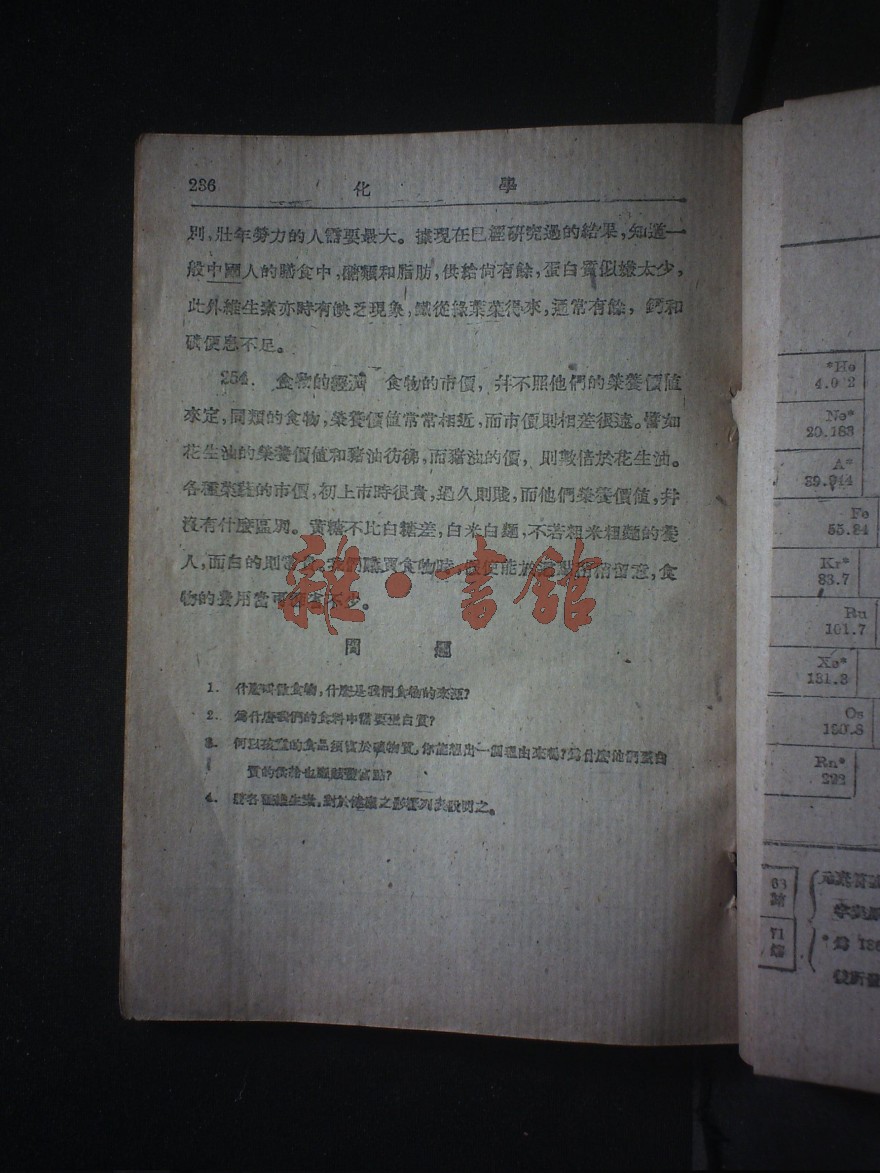 236 化 學
別，壯年勞力的人需要最大。據現在已經研究過的結果，知道一
般中國人的膳食中，醣類和脂肪，供給尚有餘，蛋白質似嫌太少，
此外維生素亦時有缺乏現象，鐵從綠葉菜得來，通常有餘， 鈣和
碘便患不足。
254. 食物的經濟 食物的市價，幷不照他們的榮養價値
來定，同類的食物，榮養價値常常相近，而市價則相差很遠。譬如
花生油的榮養價値和豬油彷彿，而豬油的價， 則數倍於花生油。
各種菜蔬的市價，初上市時很貴，過久則賤，而他們榮養價値，幷
沒有什麼區別。黃糖不比白糖差，白米白麵，不若粗米粗麵的養
人，而白的則常貴。我們購買食物時，留意，食
物的費用當可不少。
雜·書館
問 題
1. 什麼叫做食物，什麼是我們食物的來源？
2. 爲什麼我們的食料中需要蛋白質？
3. 何以孩童的食品須富於礦物質，你能想出一個理由來嗎？爲什麼他們蛋白
質的供給也應豐富點？
4. 將各種維生素，對於健康之影響列表說明之。
*He
4.0 2
Ne*
20.183
A*
39.944
Fe
55.84
Kr*
83.7
Ru
101.7
Xe*
131.3
Os
190.8
Rn*
222
63
71
元素符
* 爲 136